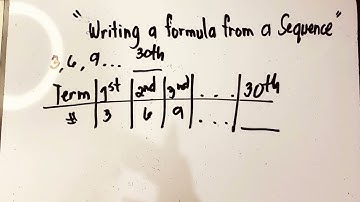 "Writing a formula from a Sequence"
3, 6, 9 ... 30th
Term 1st 2nd 3nd . . . 30th
# 3 6 9 . . . ___